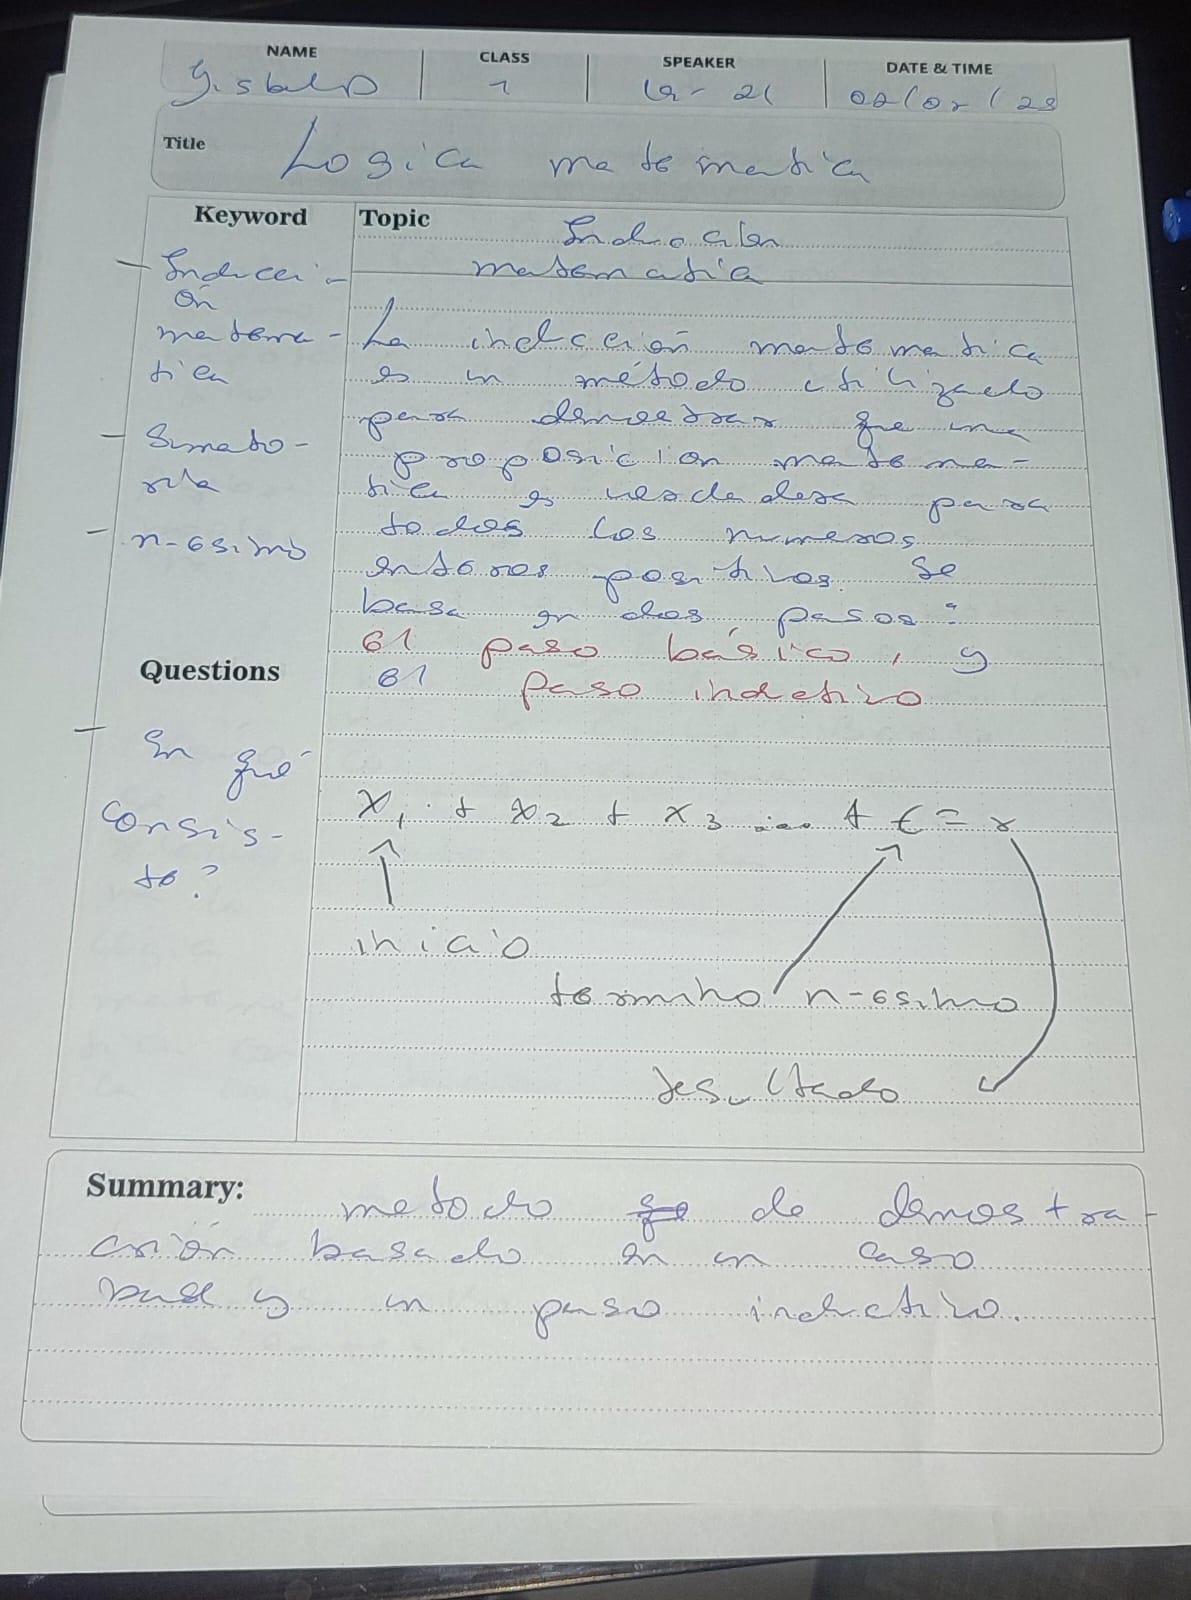 NAME CLASS SPEAKER DATE & TIME
1
Title Logica matematica
Keyword
- Inducci-
ón
matema-
tica
- Sumato-
ria
- n-esimo
Questions
- En qué
consis-
te?
Topic Inducción
matematica
La inducción matematica
es un método utilizado
para demostrar que una
proposicion matema-
tica es verdadera para
todos los numeros
enteros positivos. Se
basa en dos pasos:
el paso básico, y
el paso inductivo
x1 + x2 + x3 ... + t = r
inicio
termino n-esimo
resultado
Summary: metodo de demostra-
ción basado en un caso
base y un paso inductivo.